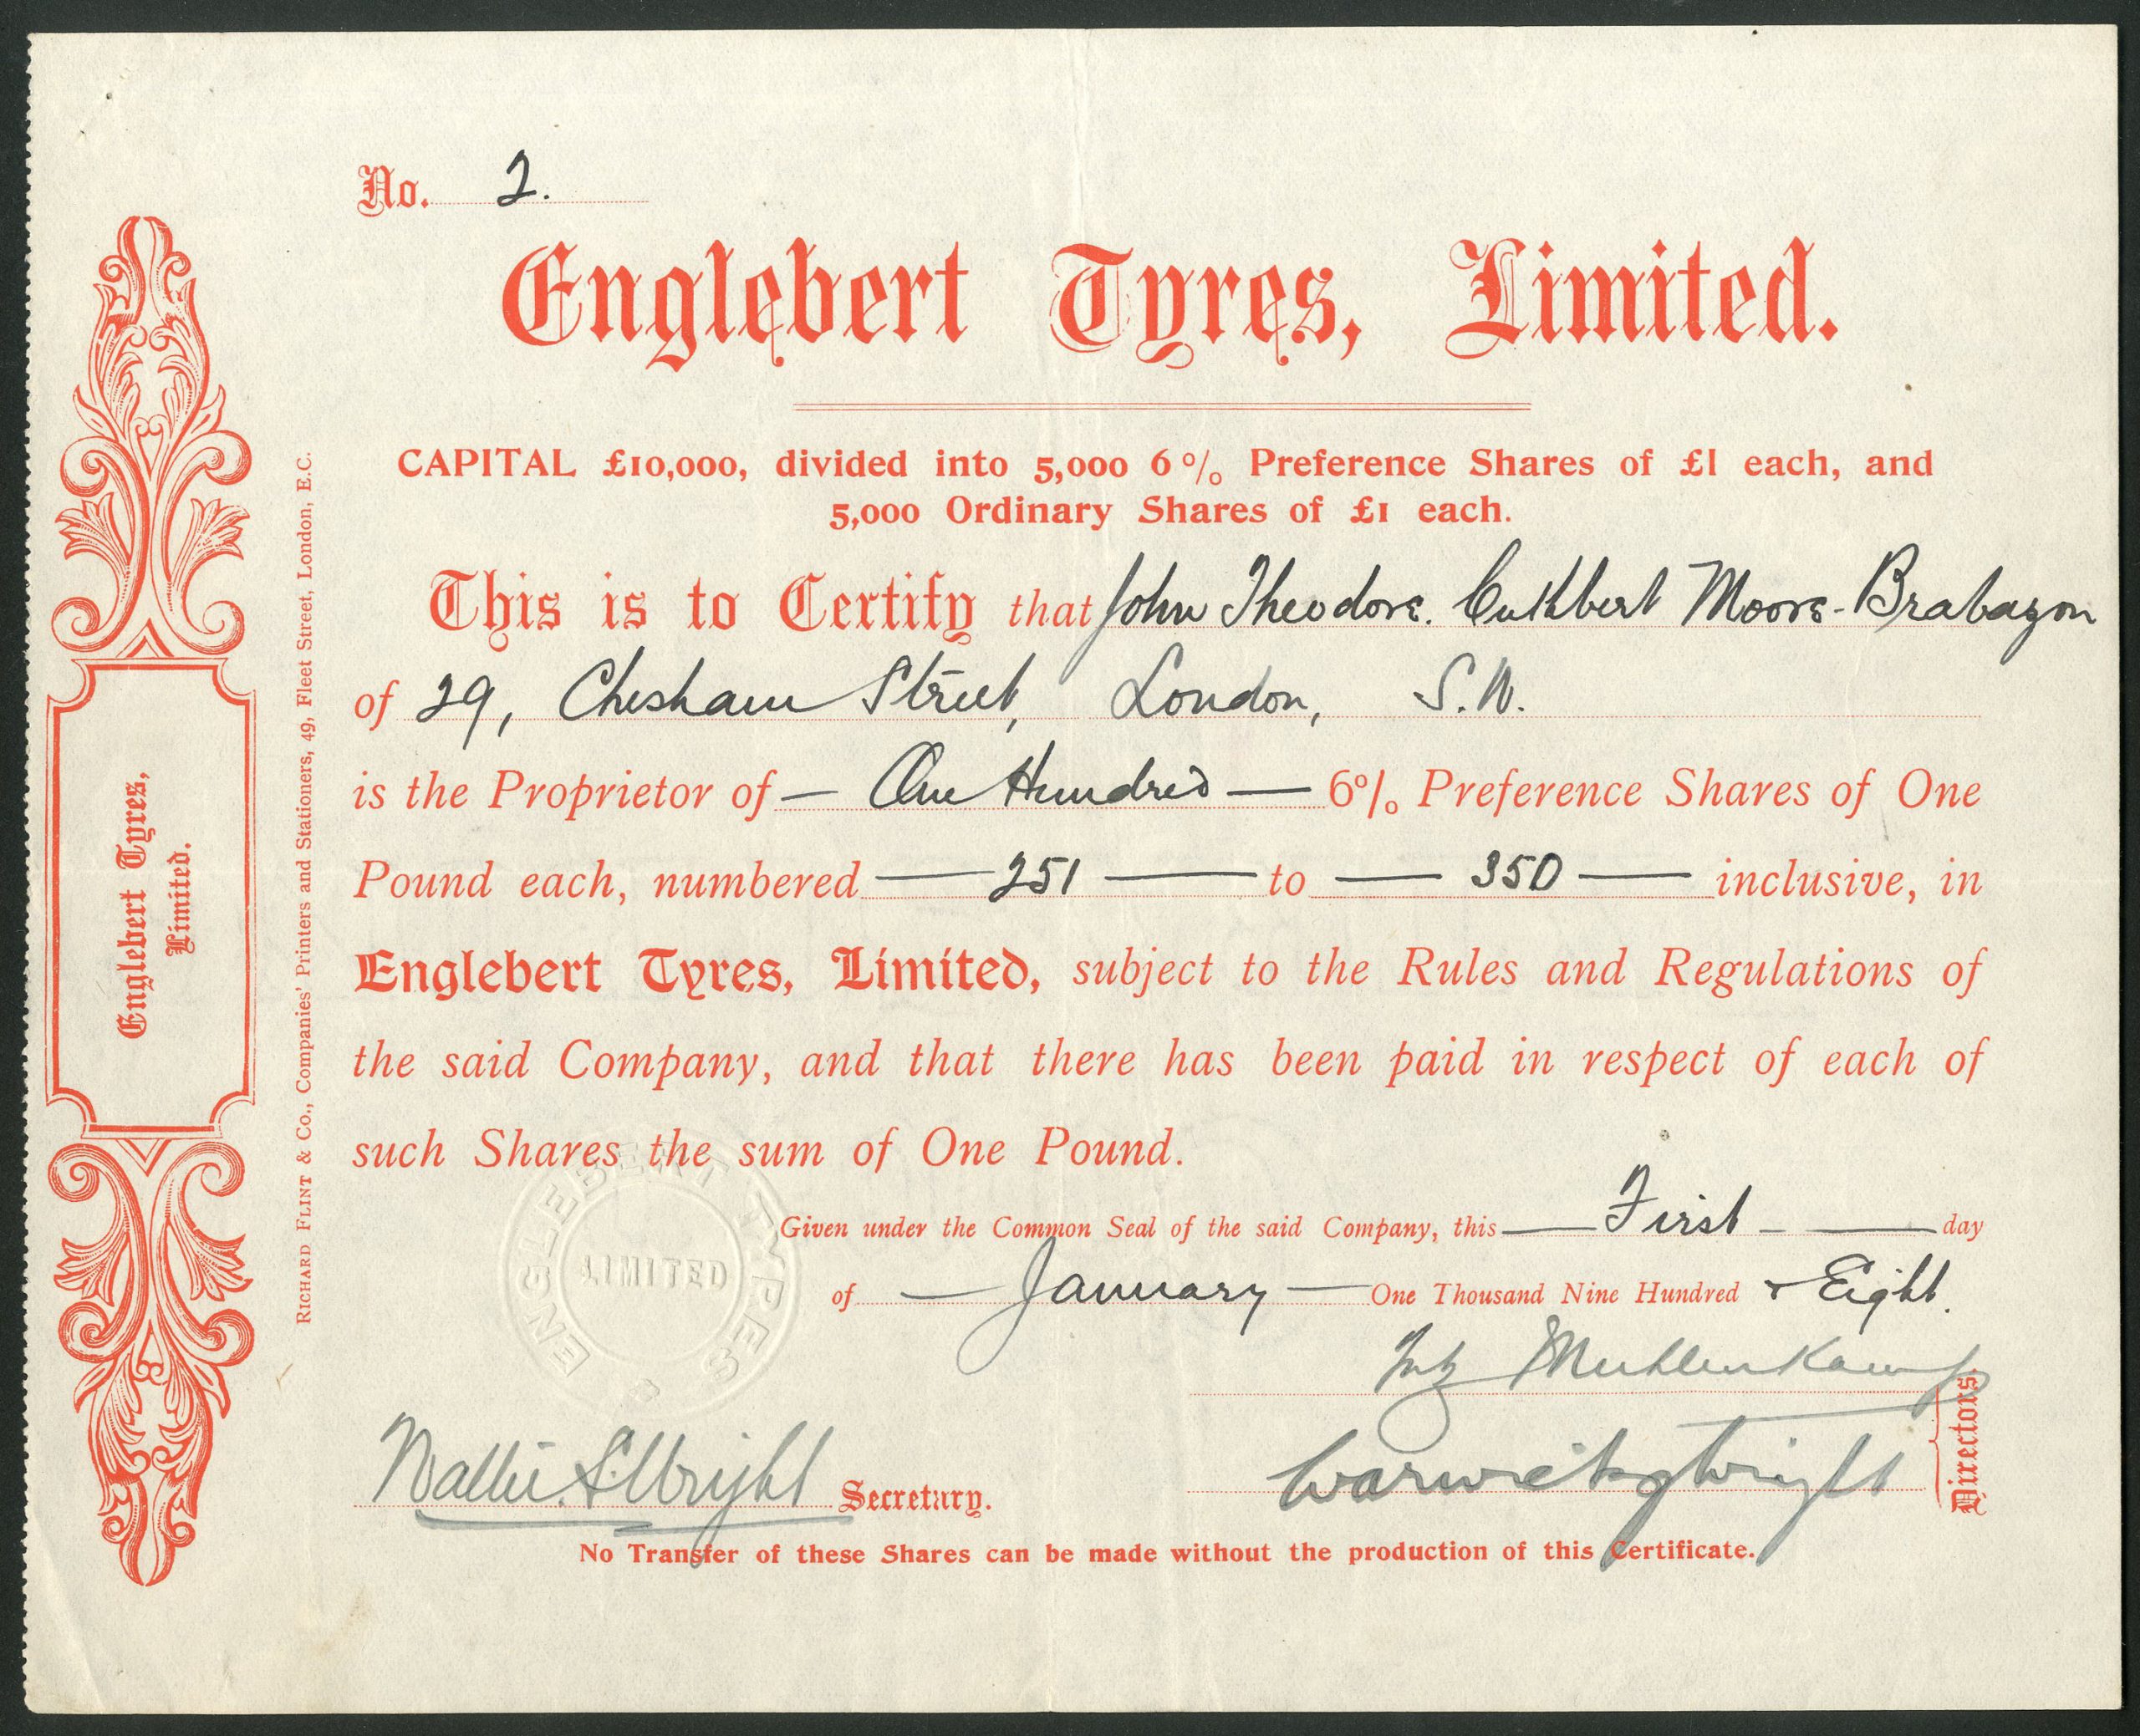 No. 2.
Englebert Tyres, Limited.
CAPITAL £10,000, divided into 5,000 6% Preference Shares of £1 each, and
5,000 Ordinary Shares of £1 each.
This is to Certify that John Theodore. Cuthbert Moore-Brabazon
of 29, Chesham Street, London, S.W.
is the Proprietor of — One Hundred — 6% Preference Shares of One
Pound each, numbered — 251 — to — 350 — inclusive, in
Englebert Tyres, Limited, subject to the Rules and Regulations of
the said Company, and that there has been paid in respect of each of
such Shares the sum of One Pound.
Given under the Common Seal of the said Company, this — First — — day
of — January — One Thousand Nine Hundred & Eight.
Muhlenkamp
Warwick J Wright
Directors.
Wright Secretary.
No Transfer of these Shares can be made without the production of this Certificate.
ENGLEBERT TYRES
LIMITED
Englebert Tyres,
Limited.
RICHARD FLINT & Co., Companies' Printers and Stationers, 49, Fleet Street, London, E.C.